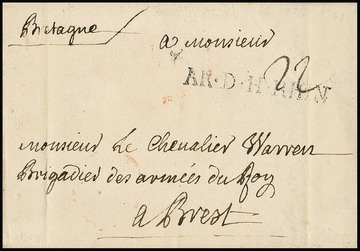 Bretagne
a Monsieur
22
AR·D·H·RHIN
Monsieur Le Chevalier Warren
Brigadier des armées du Roy
a Brest